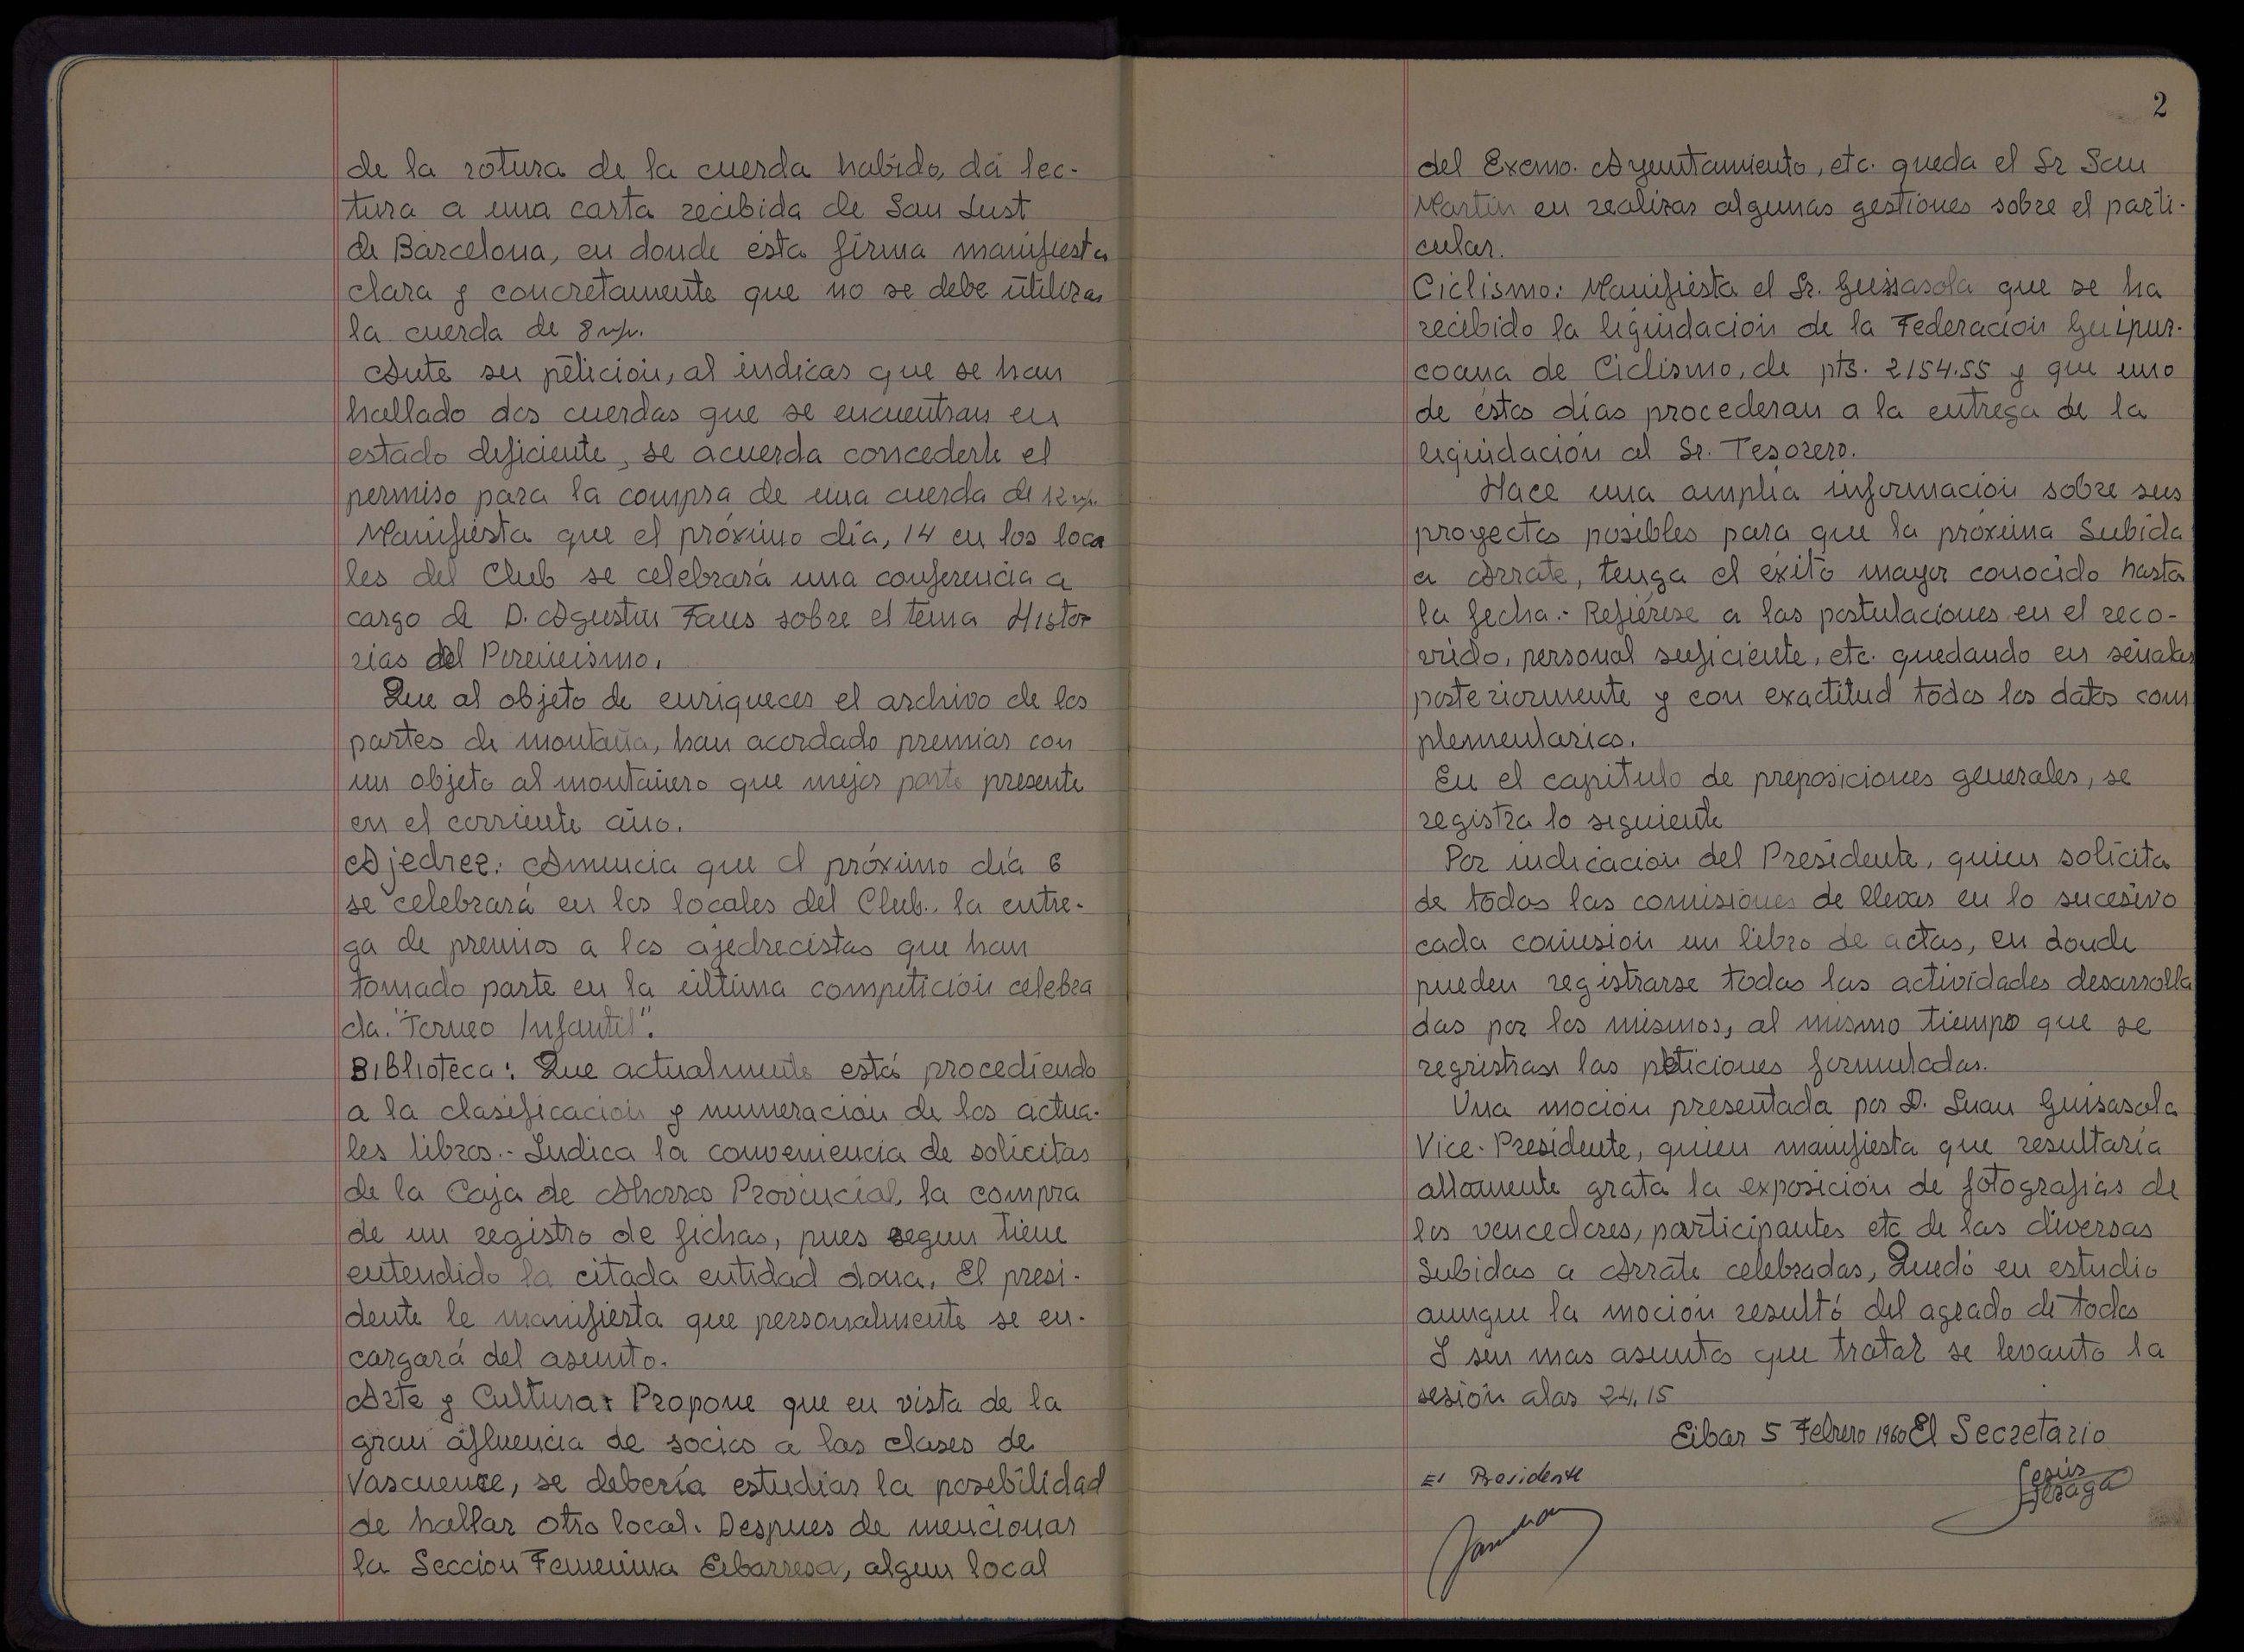 de la rotura de la cuerda habido, da lec-
tura a una carta recibida de San Just
de Barcelona, en donde ésta firma manifiesta
clara y concretamente que no se debe utilizar
la cuerda de 8 m/m.
Ante su petición, al indicar que se han
hallado dos cuerdas que se encuentran en
estado deficiente, se acuerda concederle el
permiso para la compra de una cuerda de 12 m/m.
Manifiesta que el próximo día, 14 en los loca
les del Club se celebrará una conferencia a
cargo de D. Agustin Faus sobre el tema Histor
rias del Pireneismo.
Que al objeto de enriquecer el archivo de los
partes de montaña, han acordado premiar con
un objeto al montañero que mejor parte presente
en el corriente año.
Ajedrez: Anuncia que el próximo día 6
se celebrará en los locales del Club, la entre-
ga de premios a los ajedrecistas que han
tomado parte en la última competición celebra
da. "Torneo Infantil".
Biblioteca: Que actualmente está procediendo
a la clasificación y numeración de los actua-
les libros.- Indica la conveniencia de solicitar
de la Caja de Ahorros Provincial, la compra
de un registro de fichas, pues segun tiene
entendido la citada entidad dona. El presi-
dente le manifiesta que personalmente se en-
cargará del asunto.
Arte y Cultura: Propone que en vista de la
gran afluencia de socios a las clases de
Vascuence, se debería estudiar la posibilidad
de hallar otro local. Despues de mencionar
la Seccion Femenina Eibarresa, algun local
2
del Excmo. Ayuntamiento, etc. queda el Sr San
Martin en realizar algunas gestiones sobre el parti-
cular.
Ciclismo: Manifiesta el Sr. Guisasola que se ha
recibido la liquidación de la Federación Guipuz-
coana de Ciclismo, de pts. 2154.55 y que uno
de éstos días procederan a la entrega de la
liquidación al Sr. Tesorero.
Hace una amplia información sobre sus
proyectos posibles para que la próxima Subida
a Arrate, tenga el éxito mayor conocido hasta
la fecha.- Refiérese a las postulaciones en el reco-
rrido, personal suficiente, etc. quedando en señalar
posteriormente y con exactitud todos los datos com
plementarios.
En el capitulo de preposiciones generales, se
registra lo siguiente
Por indicación del Presidente, quien solicita
de todas las comisiones de llevar en lo sucesivo
cada comision un libro de actas, en donde
pueden registrarse todas las actividades desarrolla
das por los mismos, al mismo tiempo que se
regristran las peticiones formuladas.
Una moción presentada por D. Juan Guisasola
Vice-Presidente, quien manifiesta que resultaría
altamente grata la exposición de fotografías de
los vencedores, participantes etc de las diversas
Subidas a Arrate celebradas, Quedó en estudio
aunque la moción resultó del agrado de todos
Y sin mas asuntos que tratar se levanto la
sesión alas 24,15
Eibar 5 Febrero 1960 El Secretario
El Presidente
Jesús